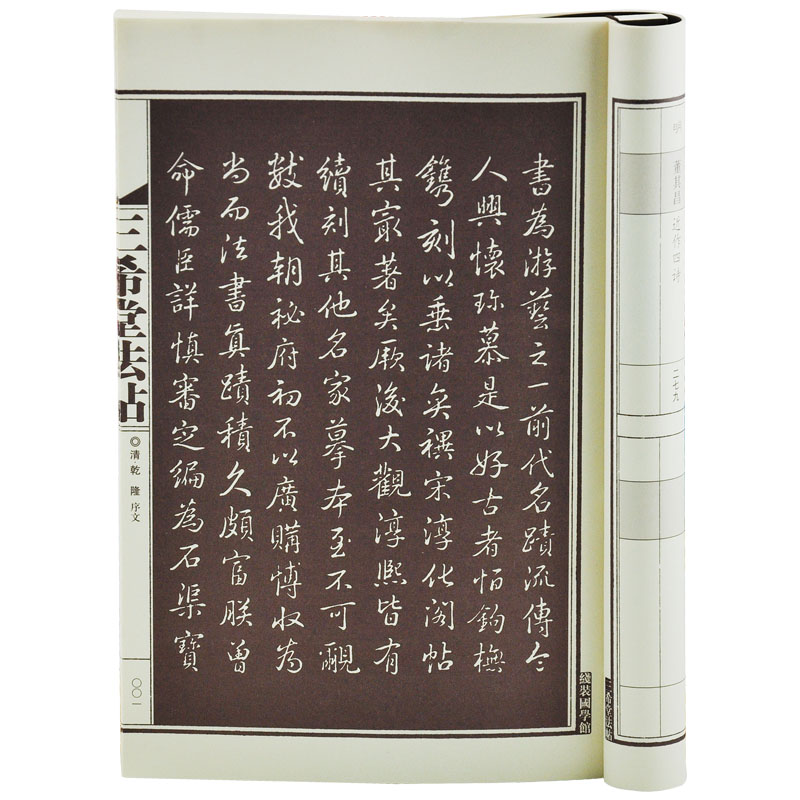 書為游藝之一前代名蹟流傳令
人興懷珎慕是以好古者怕鉤橅
鐫刻以垂諸奕禩宋淳化閣帖
其寂著矣厥後大觀淳熙皆有
續刻其他名家摹本至不可覼
數我朝秘府初不以廣購愽收為
尚而法書真蹟積久頗富朕曾
命儒臣詳慎審定編為石渠寶
三希堂法帖
◎清·乾隆 序文
〇〇一
綫裝國學館
董其昌 近作四诗
二七九
三希堂法帖